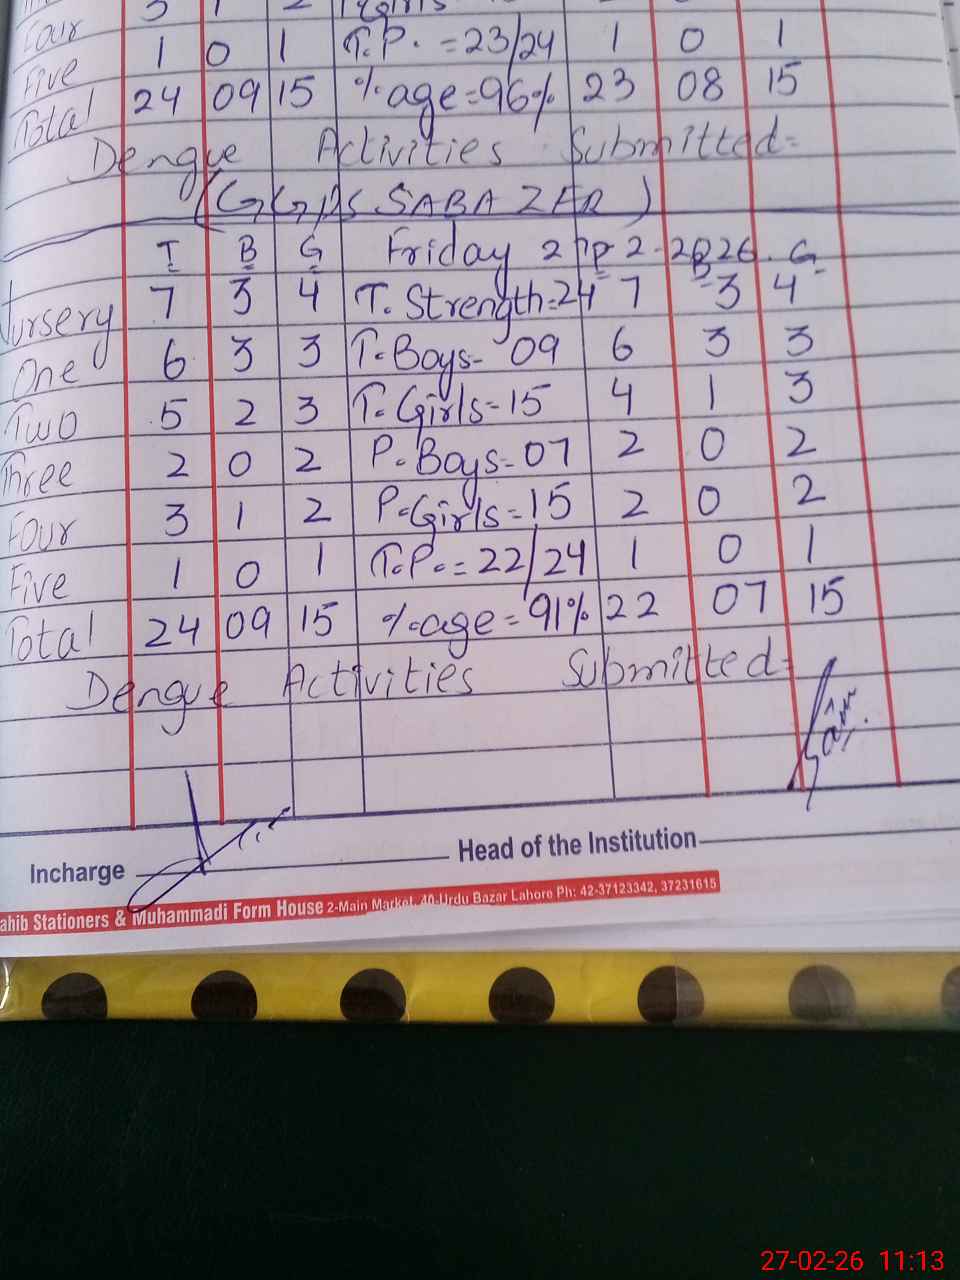 Four 3 1 2 Girls
Five 1 0 1 T.P. = 23/24 1 0 1
Total 24 09 15 %age = 96% 23 08 15
Dengue Activities Submitted=
(GGPS SABA ZER)
T B G Friday 27-2-2026. P B G
Nursery 7 3 4 T. Strength=24 7 3 4
One 6 3 3 T. Boys- 09 6 3 3
Two 5 2 3 T. Girls- 15 4 1 3
Three 2 0 2 P. Boys- 07 2 0 2
Four 3 1 2 P. Girls = 15 2 0 2
Five 1 0 1 T.P. = 22/24 1 0 1
Total 24 09 15 %age = 91% 22 07 15
Dengue Activities Submitted=
Incharge Head of the Institution
ahib Stationers & Muhammadi Form House 2-Main Market, 40-Urdu Bazar Lahore Ph: 42-37123342, 37231615
27-02-26 11:13